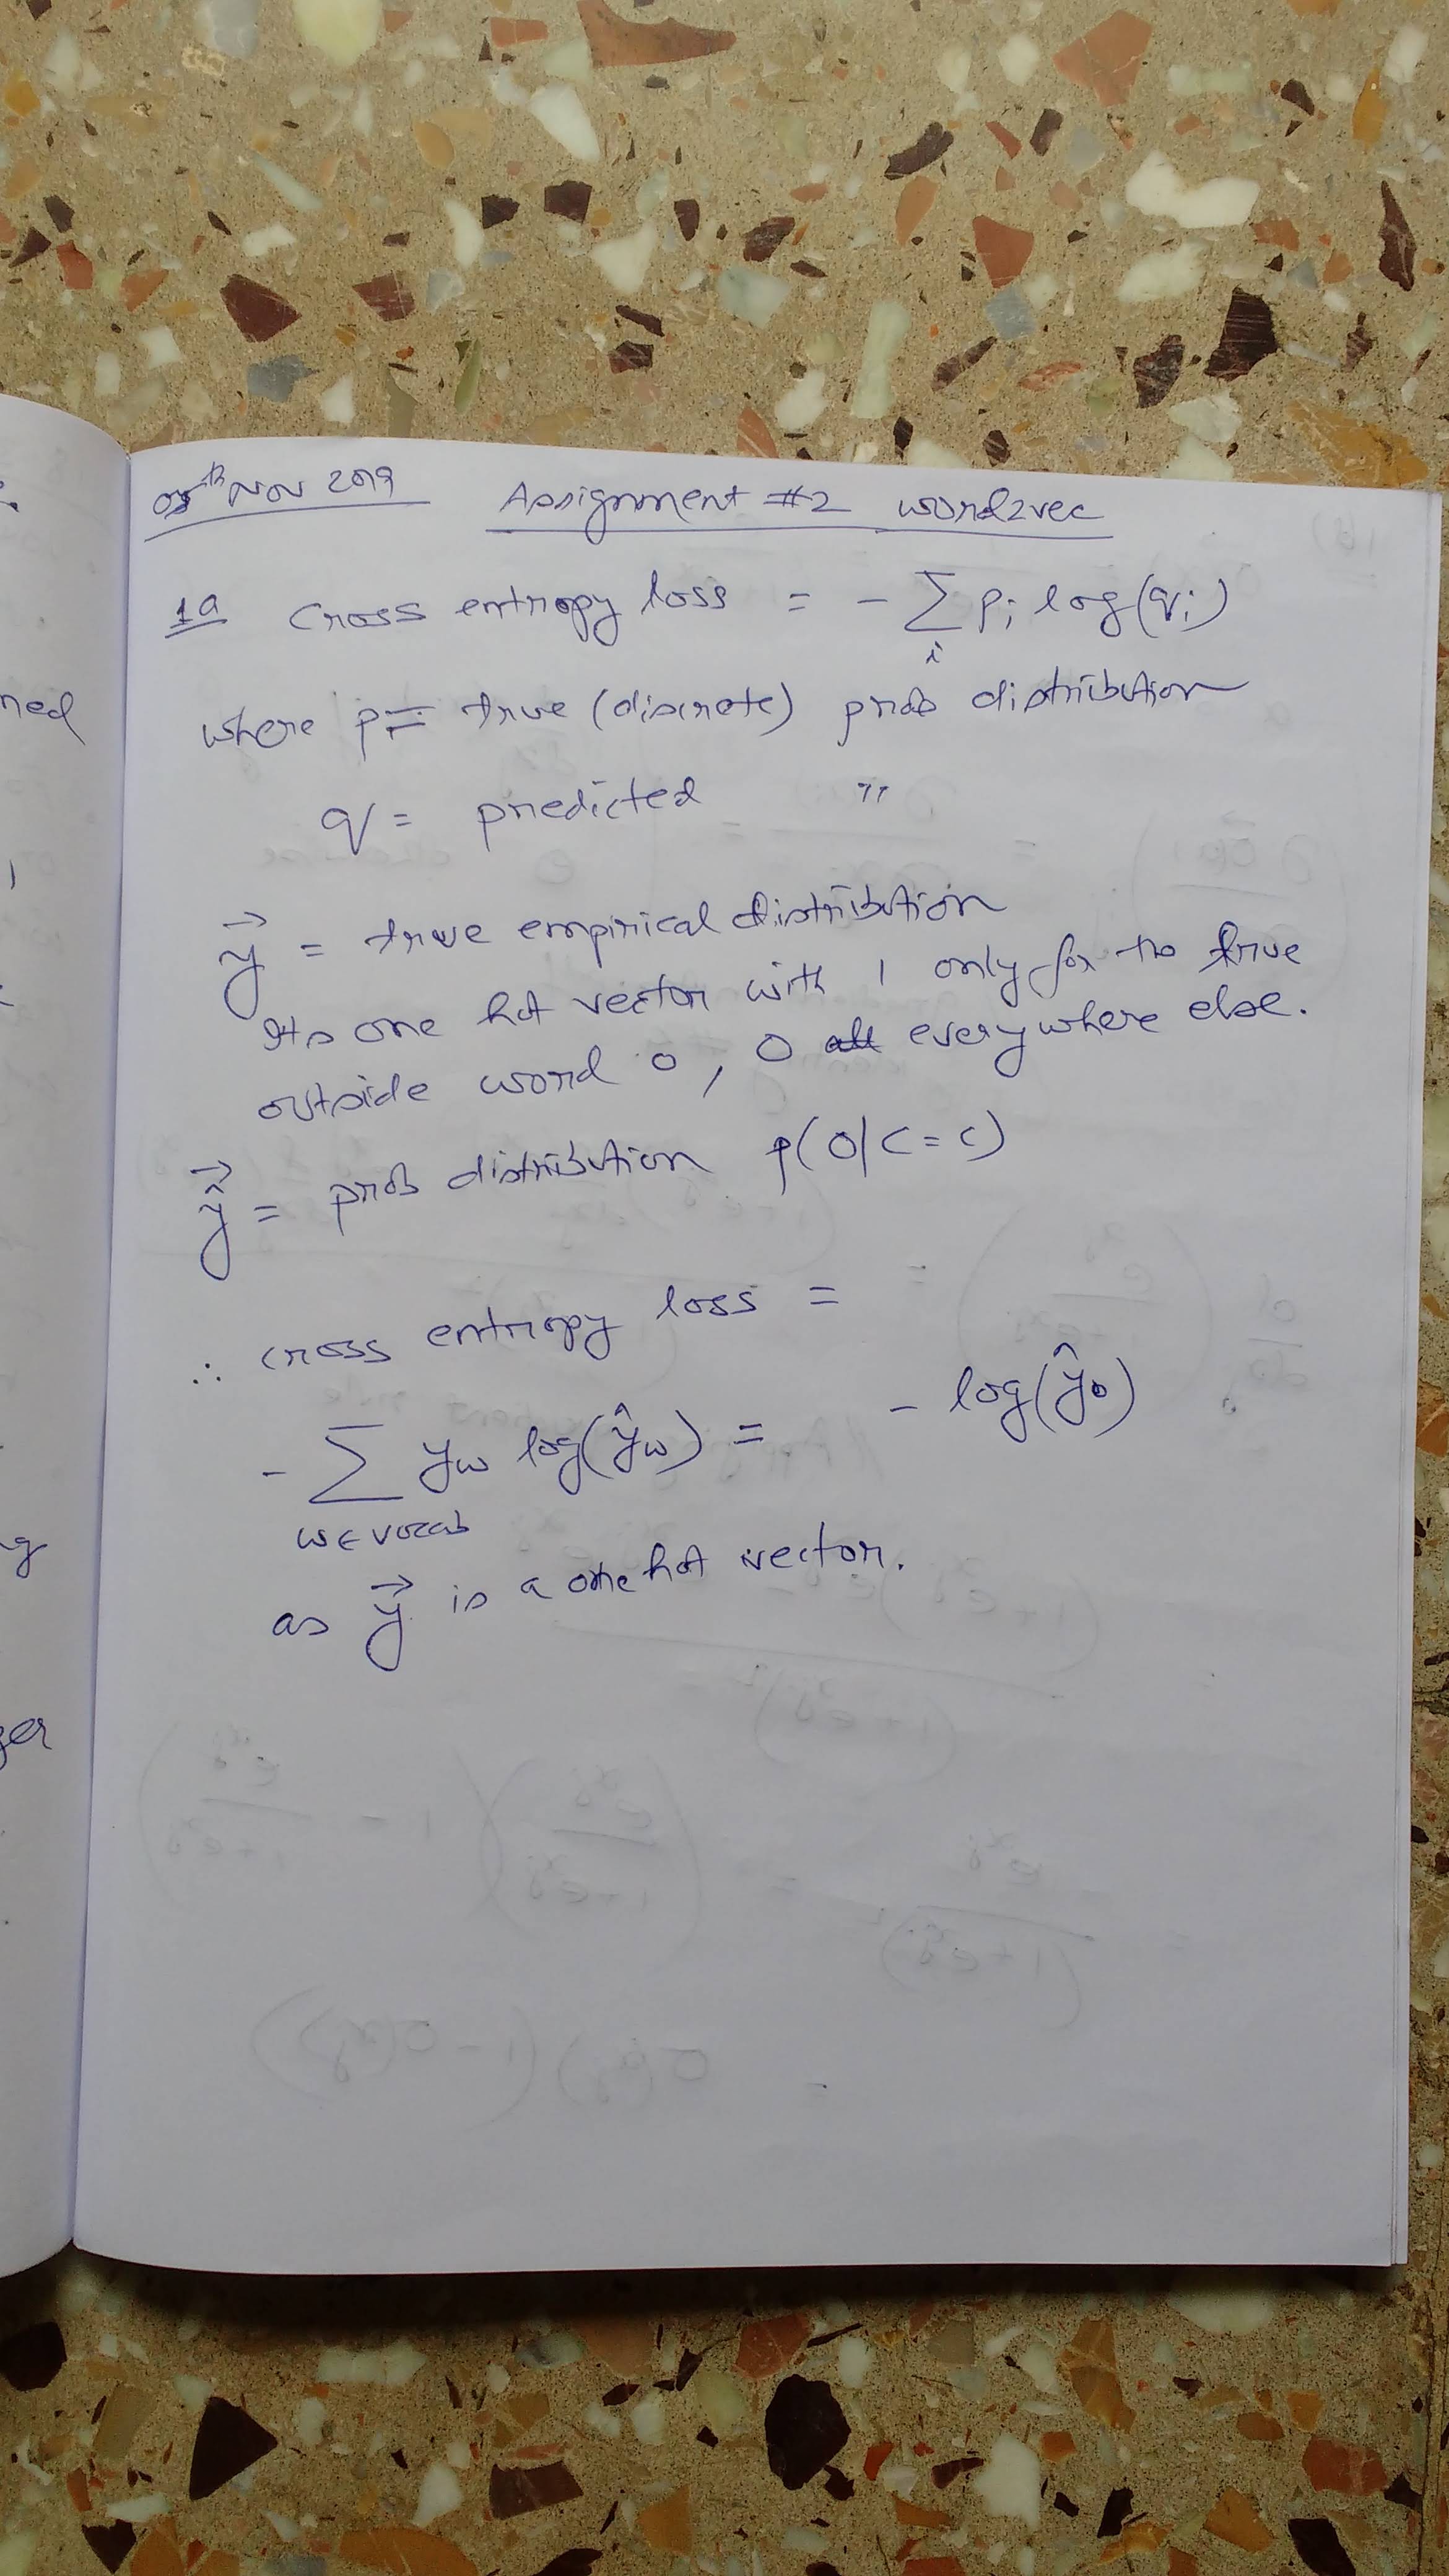 Nov 2019 Assignment #2 word2vec
1a Cross entropy loss = - ∑_i p_i log(q_i)
where p = true (discrete) prob distribution
q = predicted "
y⃗ = true empirical distribution
Its one hot vector with 1 only for the true
outside word o, 0 everywhere else.
ŷ⃗ = prob distribution p(O|C=c)
∴ cross entropy loss =
- ∑ y_w log(ŷ_w) = - log(ŷ_o)
w∈vocab
as y⃗ is a one hot vector.
ned
ng
ger